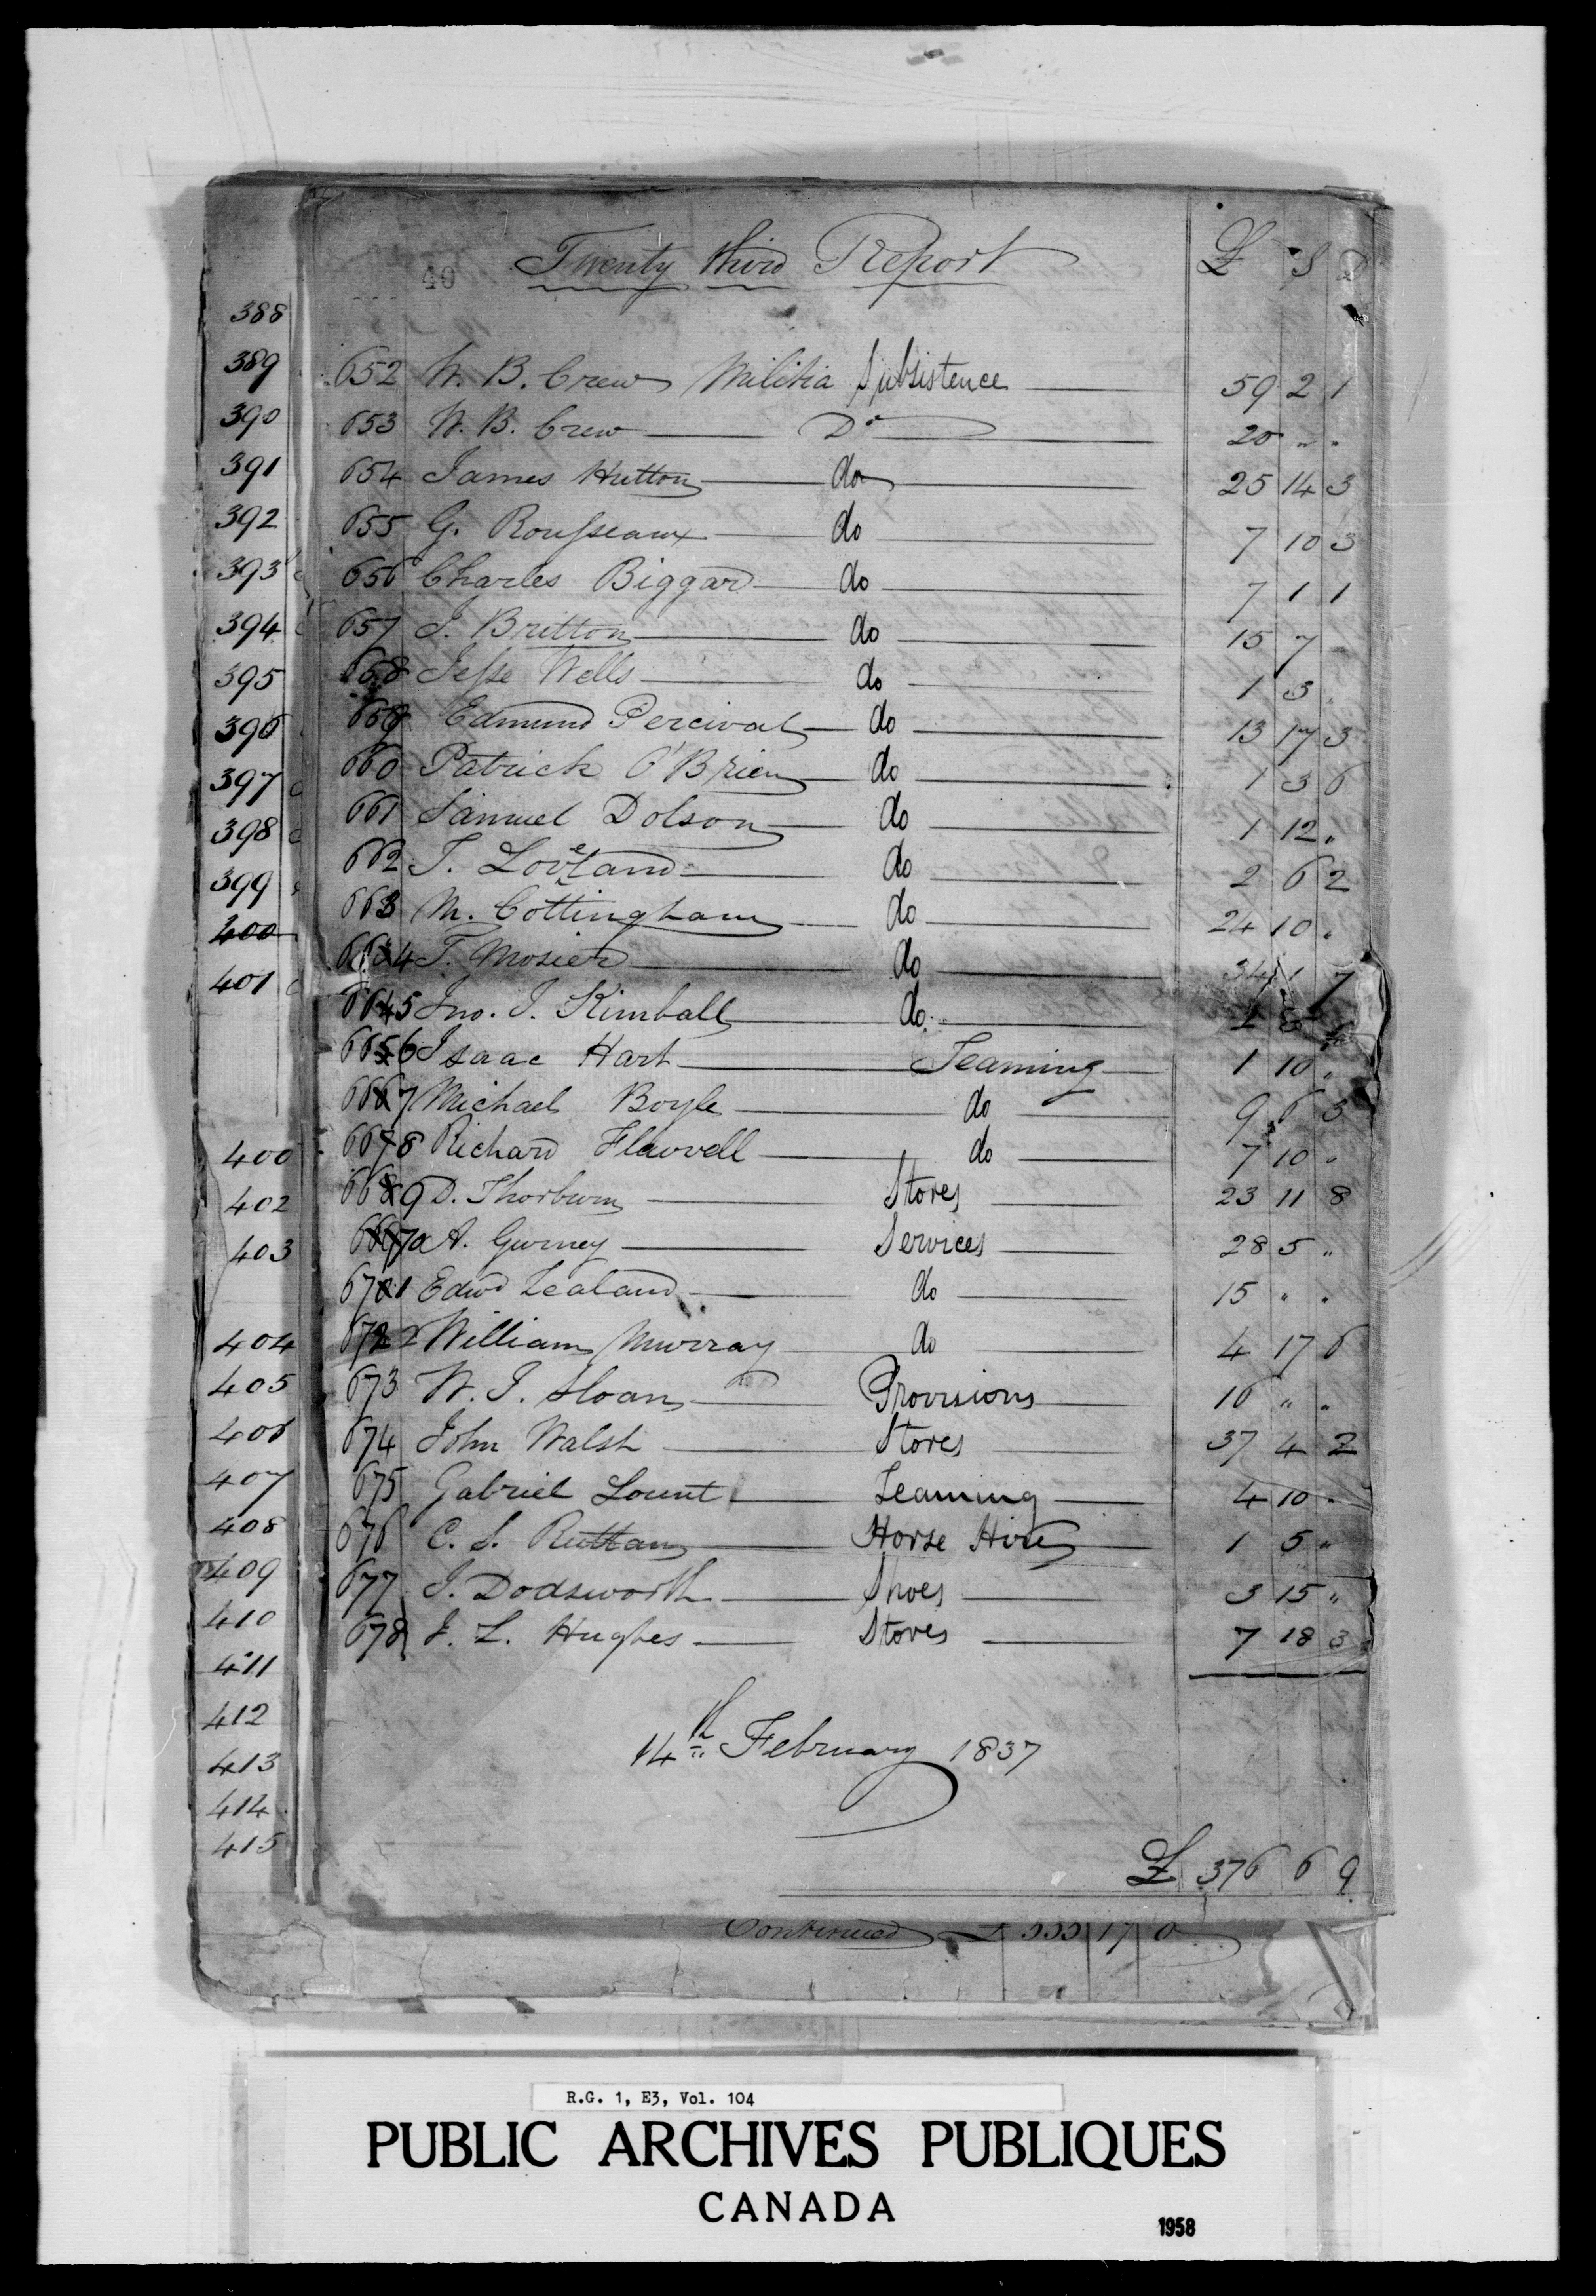 40 Twenty third Report £ S D
388
389
390
391
392
393
394
395
396
397
398
399
400
401
400
402
403
404
405
406
407
408
409
410
411
412
413
414
415
652 W. B. Crew Militia Subsistence 59 2 1
653 W. B. Crew Do 20 " "
654 James Hutton do 25 14 3
655 G. Rousseaux do 7 10 3
656 Charles Biggar do 7 1 1
657 J. Britton do 15 7
658 Jesse Wells do 1 3 "
659 Edmund Percival do 13 17 3
660 Patrick O'Brien do 1 3 6
661 Samuel Dolson do 1 12 "
662 T. Loveland do 2 6 2
663 M. Cottingham do 24 10 "
664 T. Mosier do 34 1 7
665 Jno. J. Kimball do
666 Isaac Hart Teaming 1 10 "
667 Michael Boyle do 9 6 3
668 Richard Flavvell do 7 10 "
669 D. Thorburn Stores 23 11 8
670 A. Gurney Services 28 5 "
671 Edwd Zealand do 15 " "
672 William Murray do 4 17 6
673 W. J. Sloan Provisions 10 " "
674 John Walsh Stores 37 4 2
675 Gabriel Lount Teaming 4 10 "
676 C. S. Ruttan Horse Hire 1 5 "
677 J. Dodsworth Shoes 3 15 "
678 J. L. Hughes Stoves 7 18 3
14th February 1837
£ 376 6 9
Continued £ 333 17 0
R.G. 1, E3, Vol. 104
PUBLIC ARCHIVES PUBLIQUES
CANADA
1958